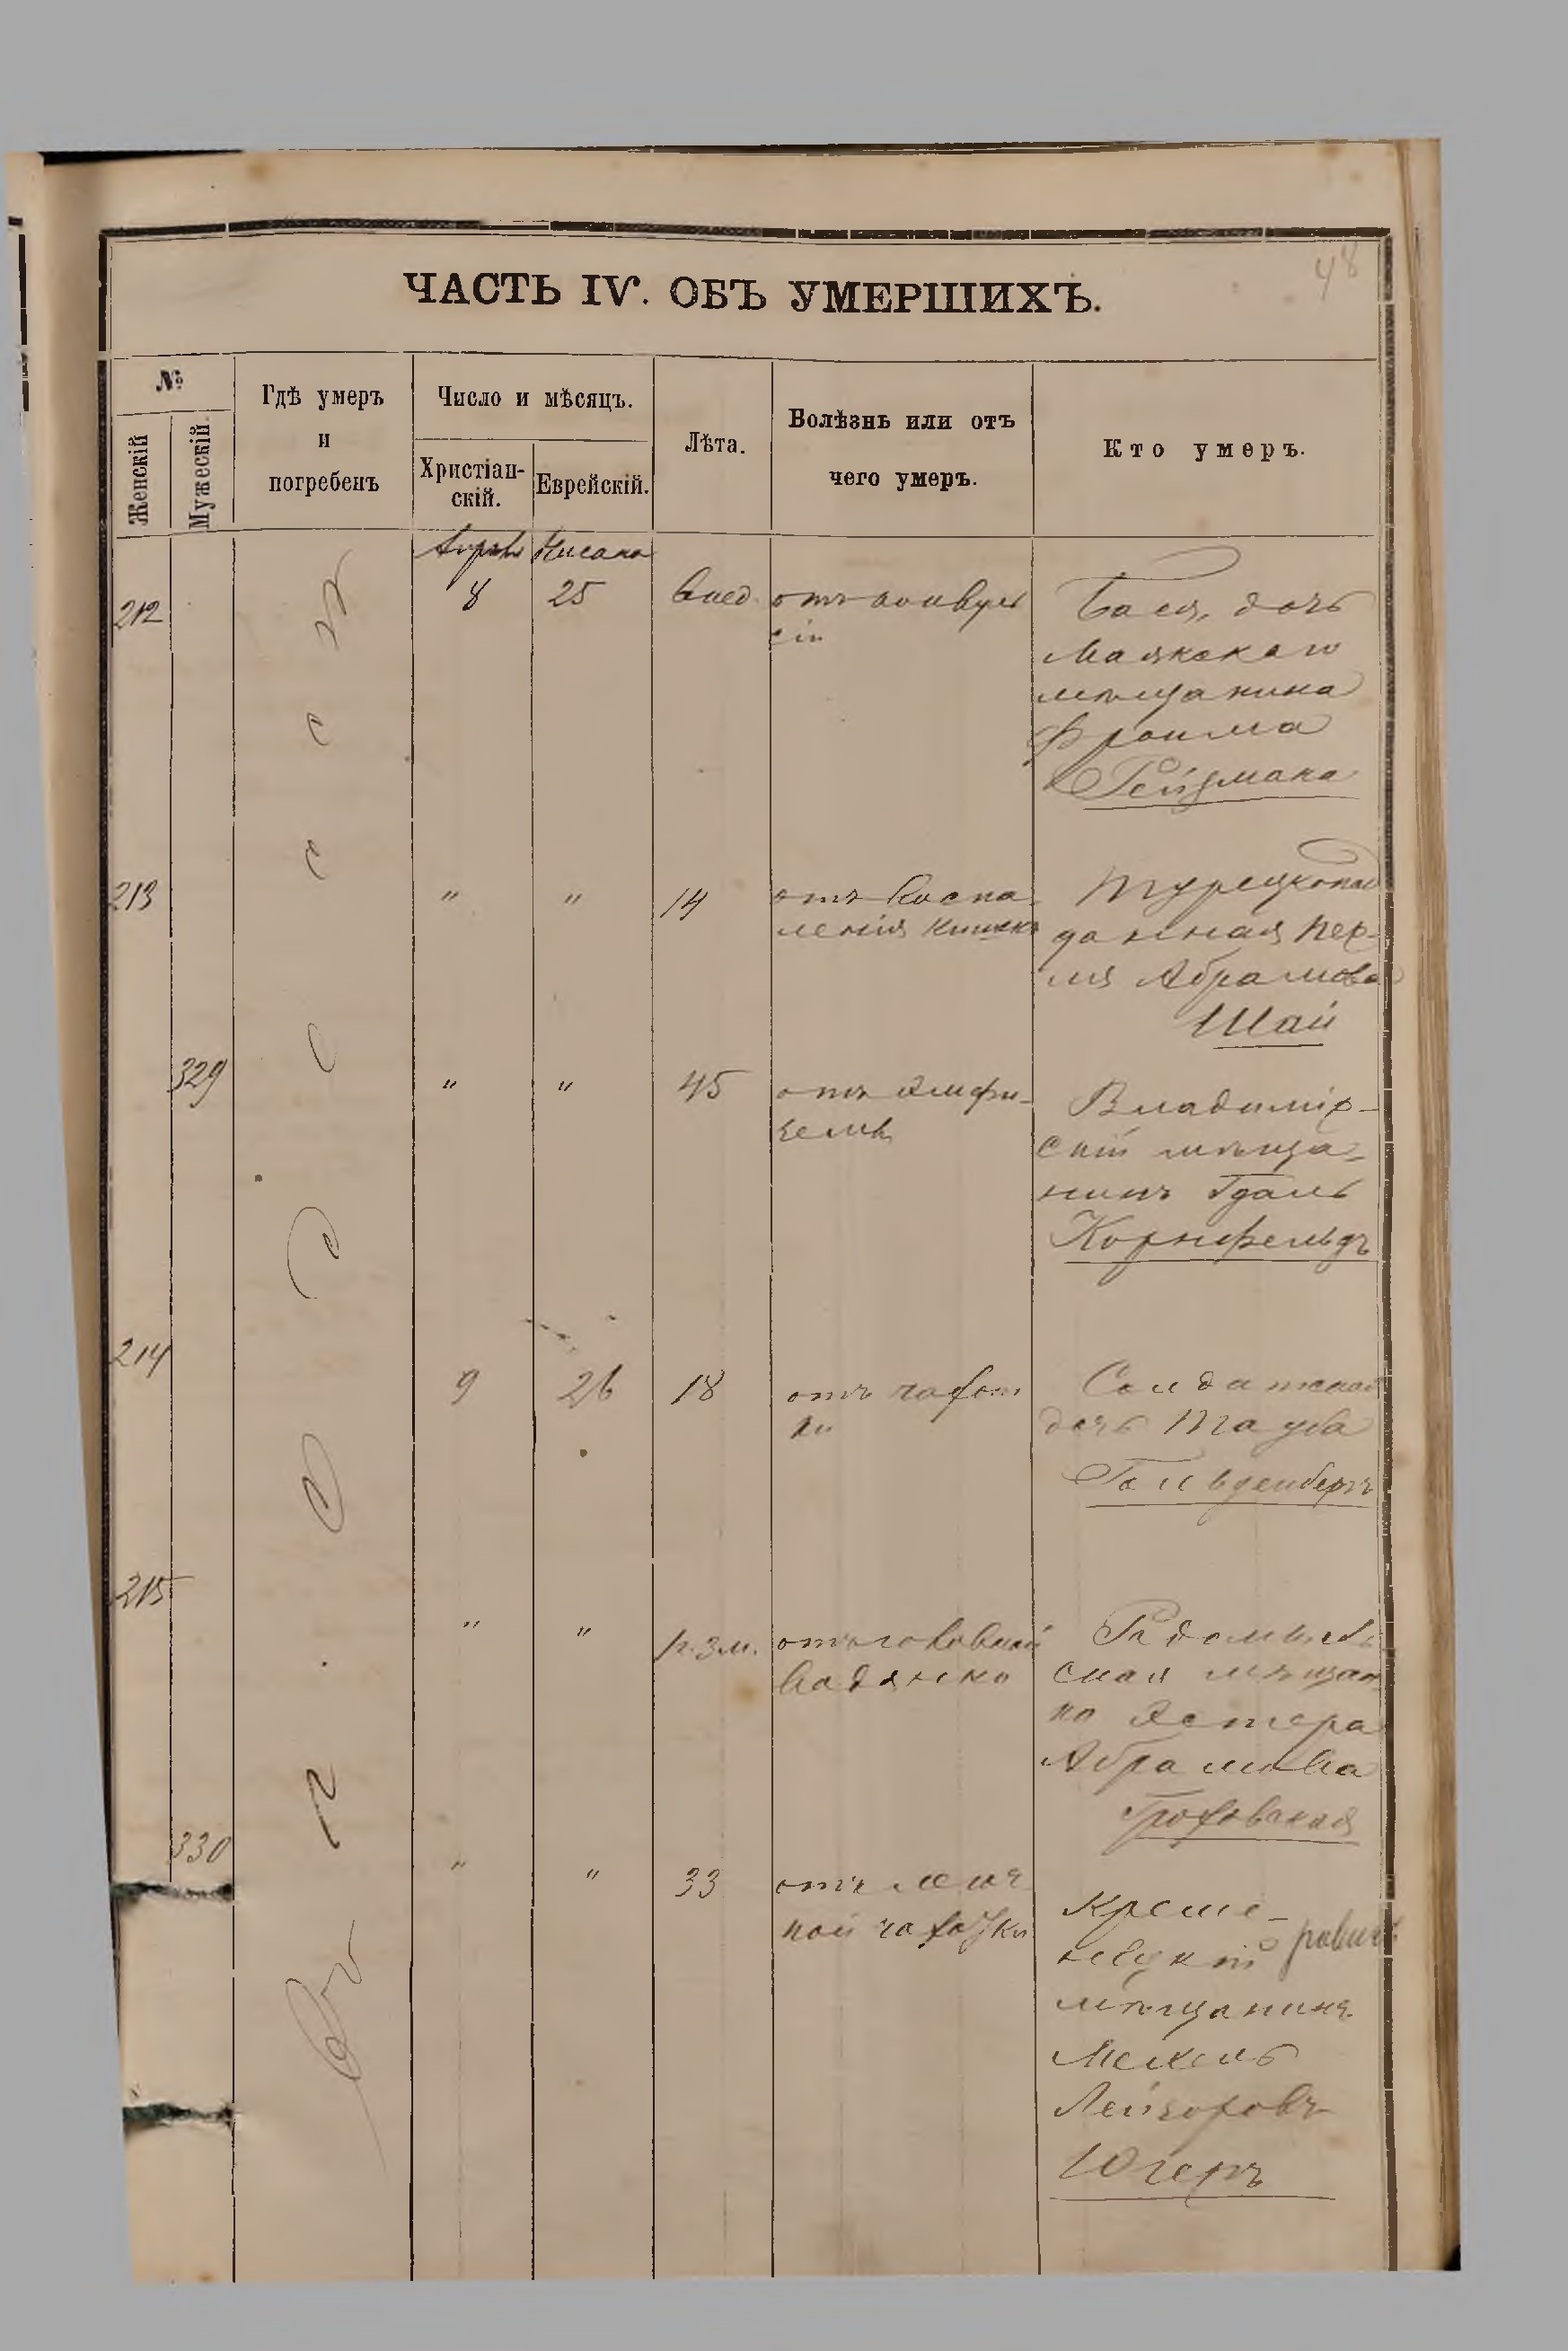 48
ЧАСТЬ IV. ОБЪ УМЕРШИХЪ.
№
Женскій
Мужескій.
Гдѣ умеръ
и
погребенъ
Число и мѣсяцъ.
Христіан-
скій.
Еврейскій.
Лѣта.
Болѣзнь или отъ
чего умеръ.
Кто умеръ.
Въ г. Одессѣ
Апрѣль Нисана
212 8 25 отъ конвуль
сіи
Бася, дочь
Маякскаго
мѣщанина
Фроима
Рейзмана
213 " " 14 отъ воспа-
ленія кишекъ
Турецкопод
данная Пер-
ля Абрамова
Шай
329 " " 45 отъ эмфи-
земы
Владимір-
скій мѣща-
нинъ Гдаль
Корнфельдъ
214 9 26 18 отъ чахот
ки
Солдатская
дочь Тауба
Гольденбергъ
215 " " отъ головной
водянки
Радомысль
ская мѣщан
ка Эстера
Абрамова
Гроховская
330 " " 33 отъ легоч
ной чахотки
Креме-
нецкій
мѣщанинъ
Мехель
Лейзоровъ
Югеръ